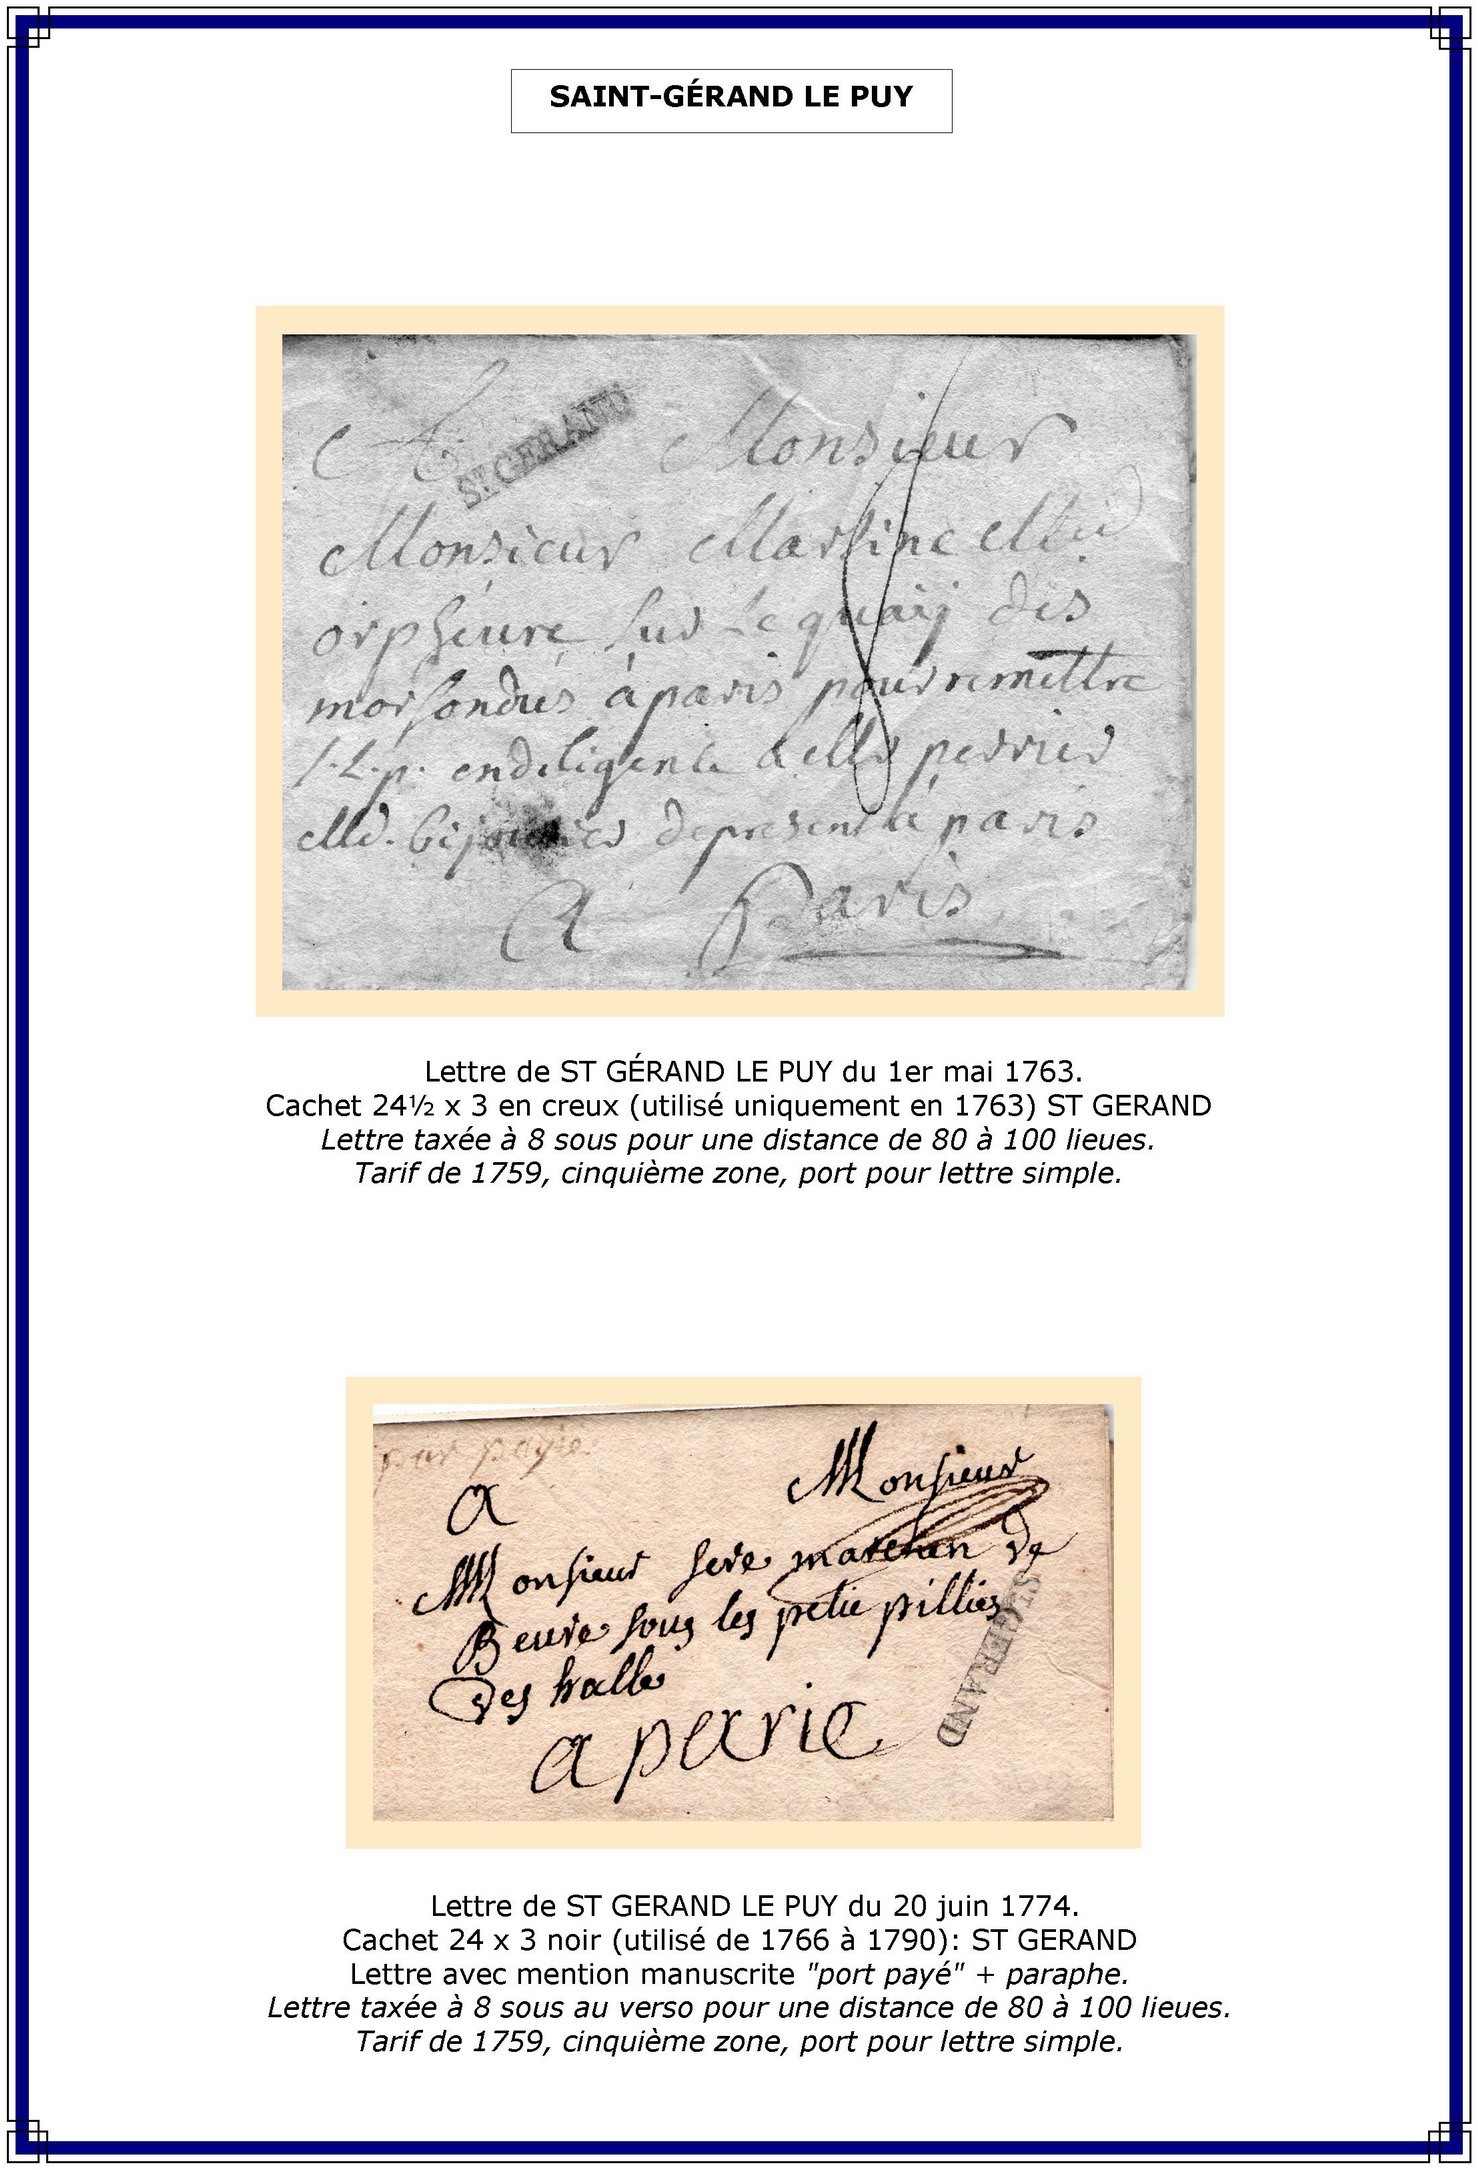 SAINT-GÉRAND LE PUY
A Monsieur
ST GERAND
Monsieur Martine Md
orpheure sur Le quaij des
morfondus à paris pour remettre
s.l.p. en diligence a Mr perrier
Md. bijoutier de present à paris
A Paris
8
Lettre de ST GÉRAND LE PUY du 1er mai 1763.
Cachet 24½ x 3 en creux (utilisé uniquement en 1763) ST GERAND
Lettre taxée à 8 sous pour une distance de 80 à 100 lieues.
Tarif de 1759, cinquième zone, port pour lettre simple.
port payé
a Monsieur
Monsieur sere marchan de
Beure sous les petie pillies
des halle
a parie
ST GERAND
Lettre de ST GERAND LE PUY du 20 juin 1774.
Cachet 24 x 3 noir (utilisé de 1766 à 1790): ST GERAND
Lettre avec mention manuscrite "port payé" + paraphe.
Lettre taxée à 8 sous au verso pour une distance de 80 à 100 lieues.
Tarif de 1759, cinquième zone, port pour lettre simple.